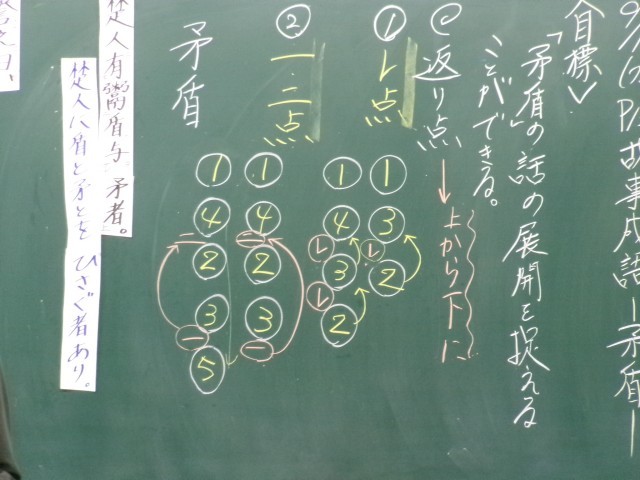 故事成語ー矛盾ー
〈目標〉
「矛盾」の話の展開を捉える
ことができる。
◎返り点→上から下に
① レ点
1 3 レ 2
1 4 レ 3 レ 2
② 一・二点
1 4 二 2 3 一
1 4 二 2 3 一 5
矛盾
楚人有鬻盾与矛者。
楚人に盾と矛とをひさぐ者あり。